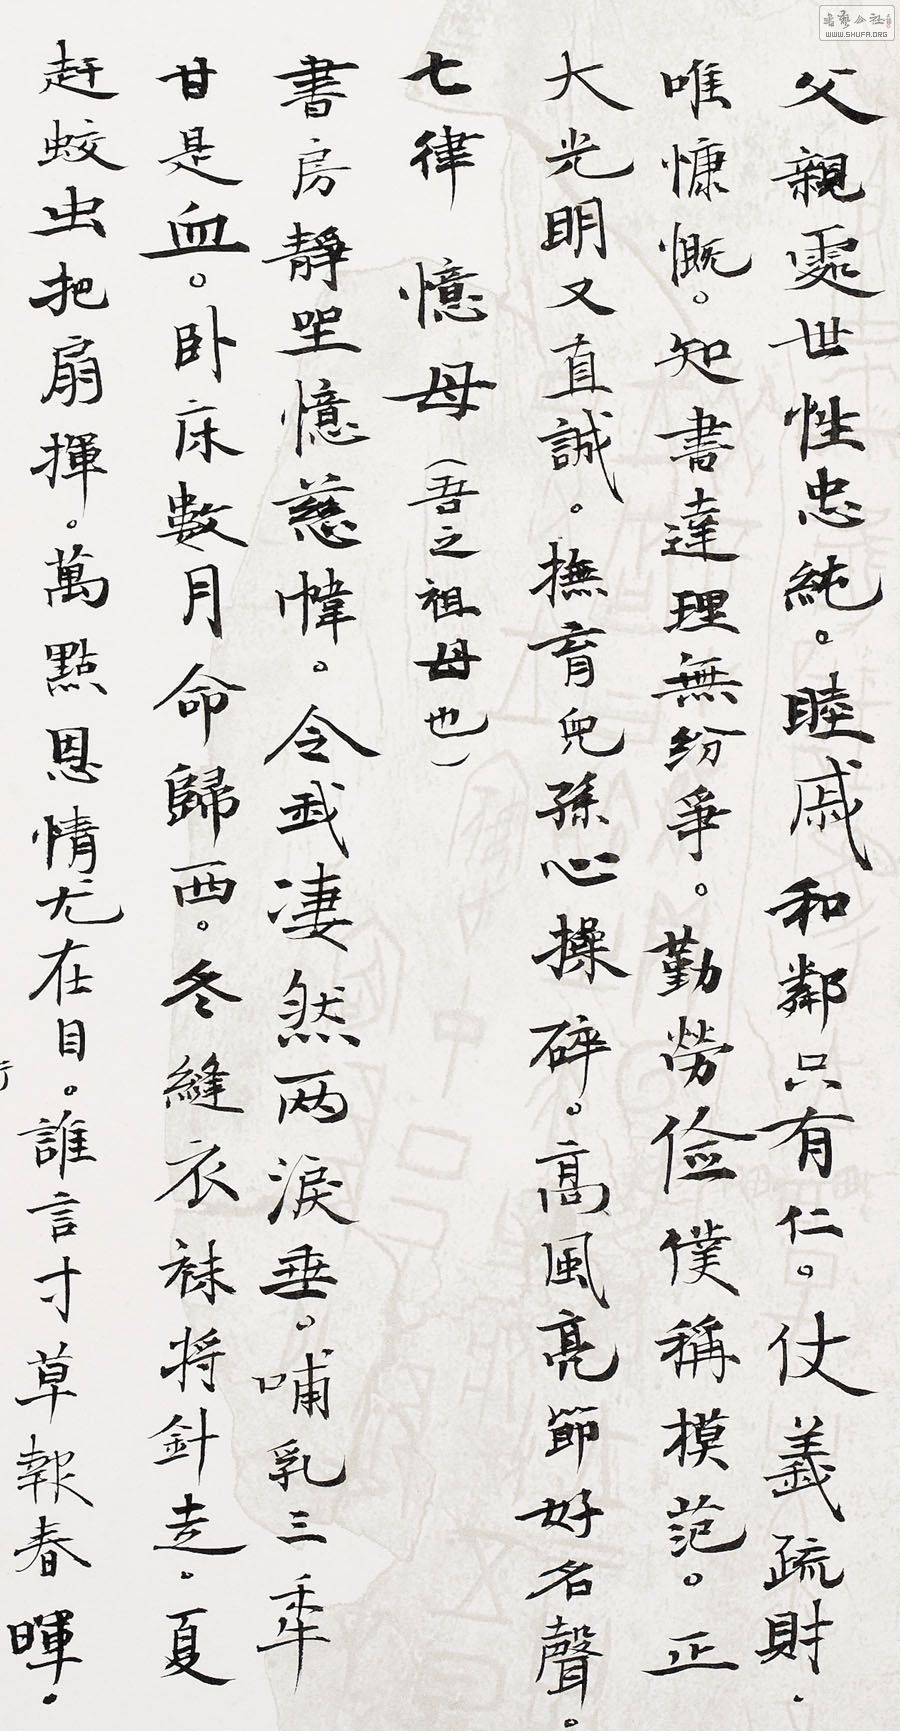 父親處世性忠純。睦戚和鄰只有仁。仗義疏財.
唯慷慨。知書達理無紛爭。勤勞儉僕稱模范。正
大光明又直誠。撫育兒孫心操碎。高風亮節好名聲。
七律 憶母(吾之祖母也)
書房靜坐憶慈幃。令我淒然两淚垂。哺乳三年
甘是血。卧床數月命歸西。冬縫衣袜将針走.夏
赶蚊出把扇揮。萬點恩情尤在目。誰言寸草報春暉.
書藝公社
WWW.SHUFA.ORG